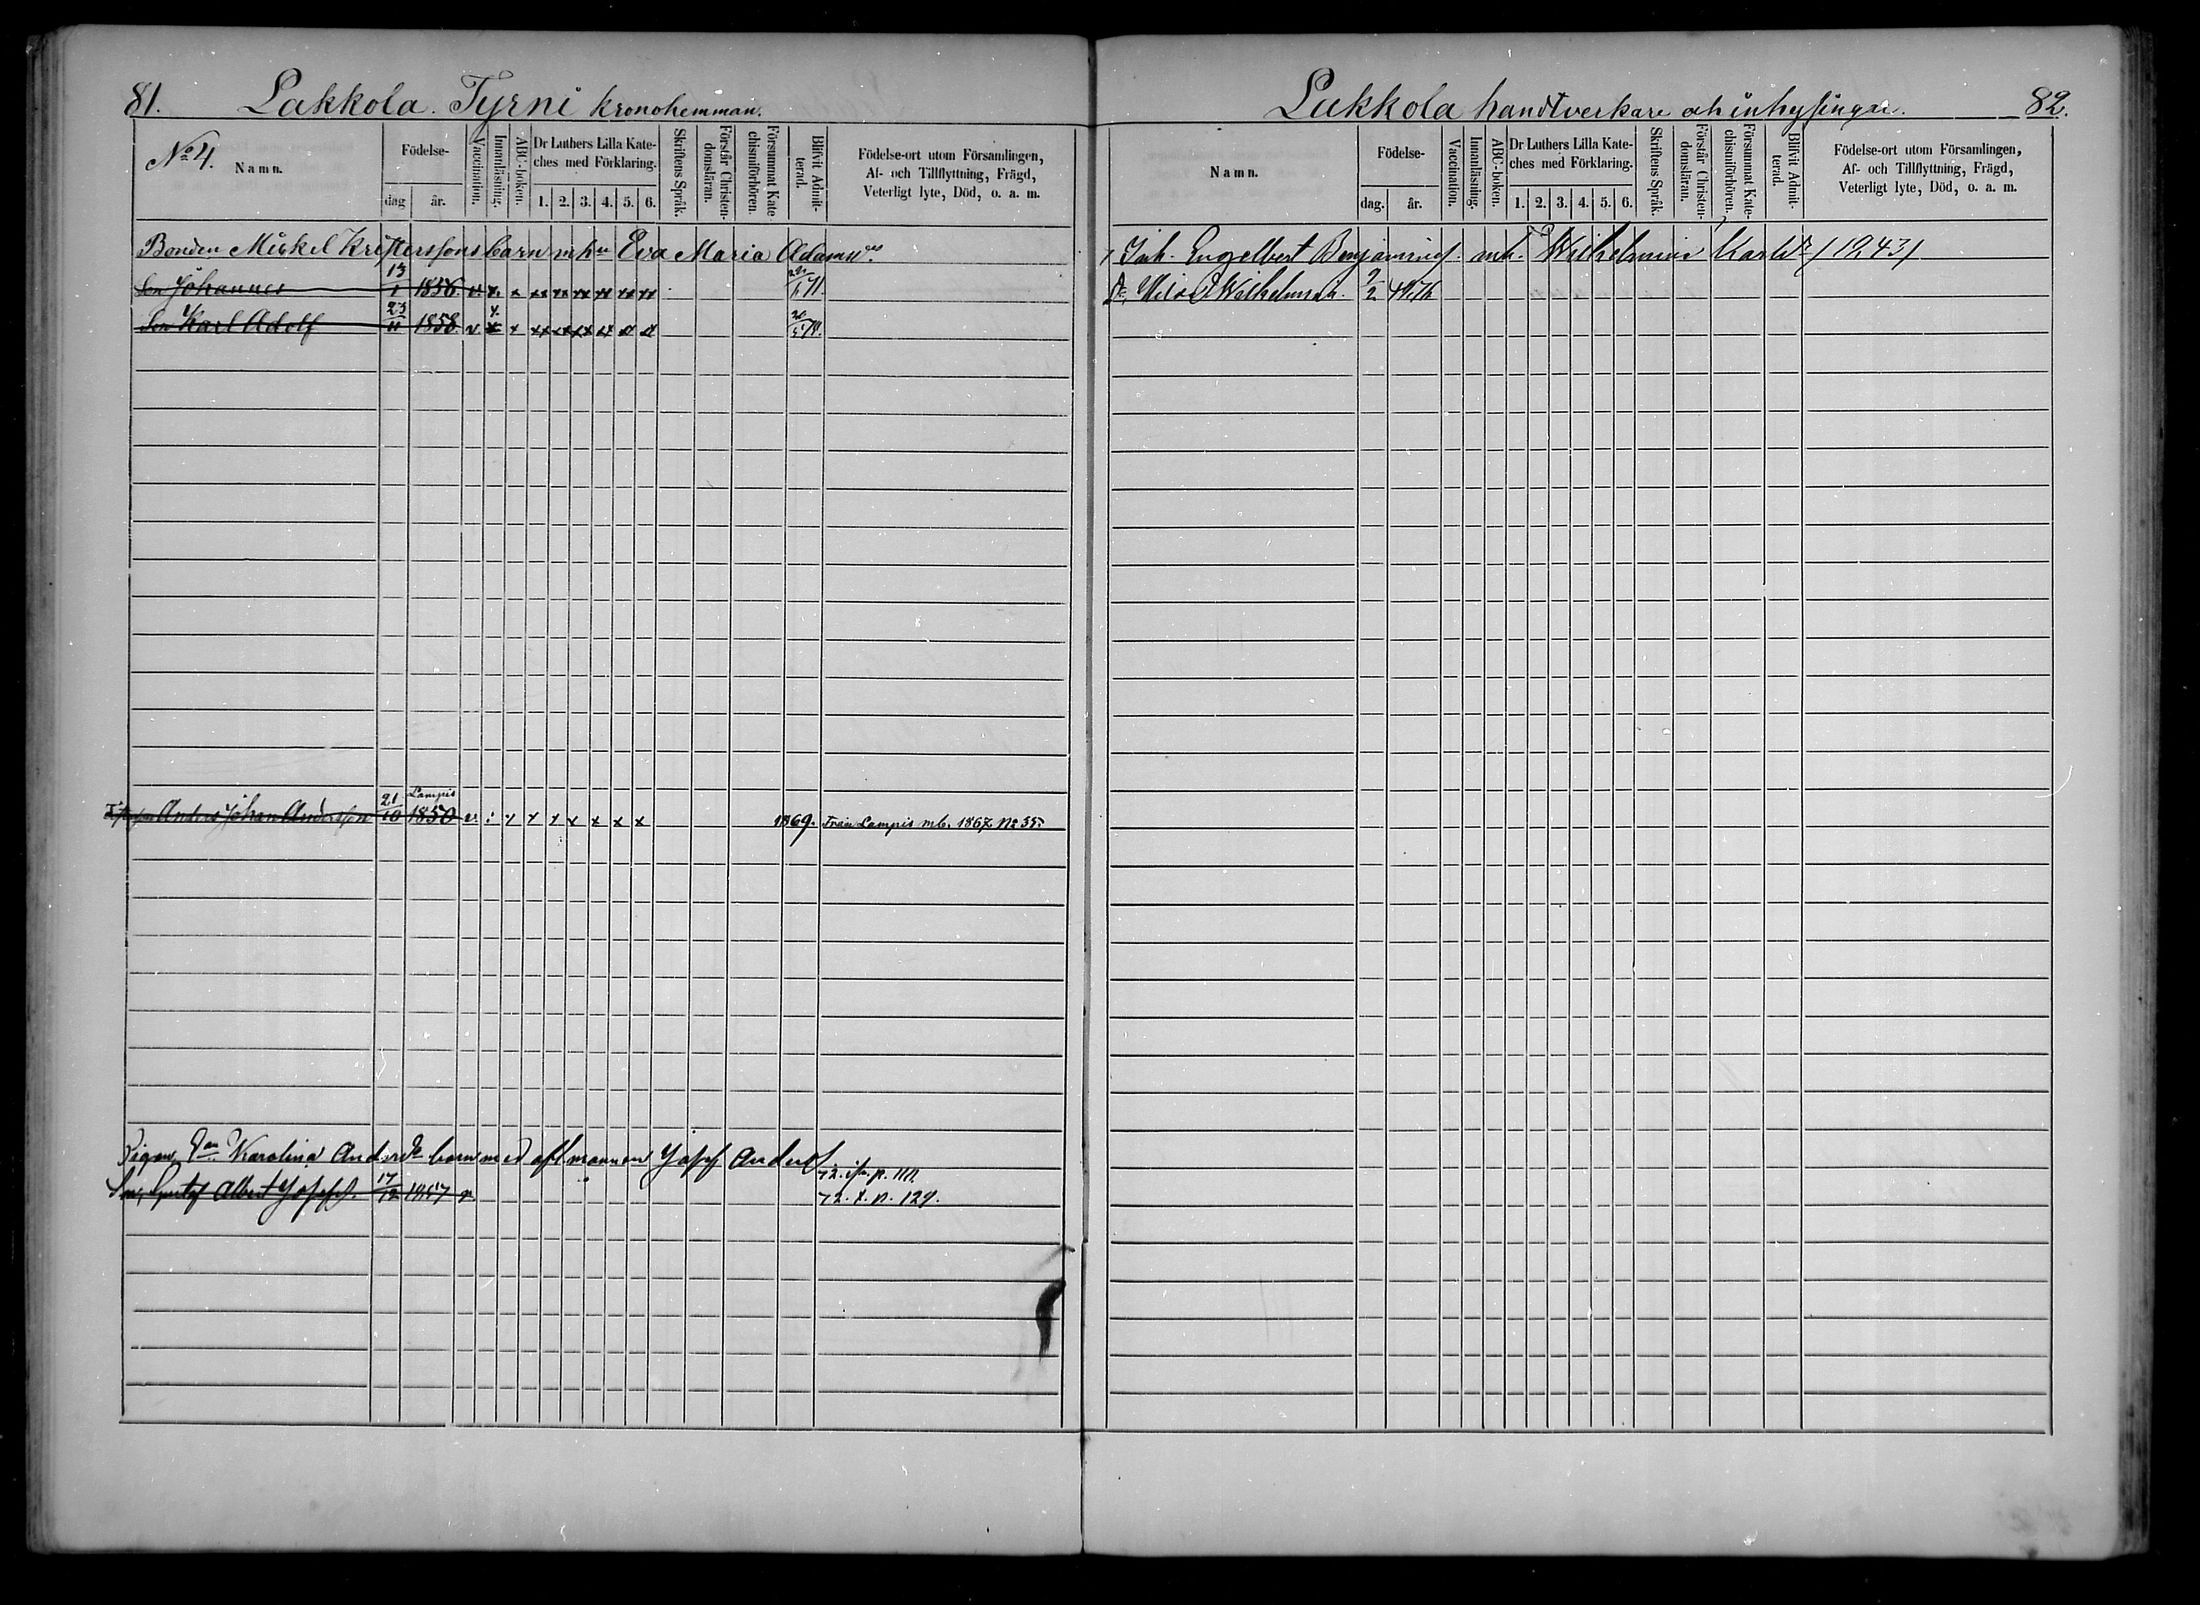 81. Lakkola. Tyrni kronohemman.
No 4.
Namn.
Födelse-
dag år.
Vaccination.
Innanläsning.
ABC-boken.
Dr Luthers Lilla Kate-
ches med Förklaring.
1. 2. 3. 4. 5. 6.
Skriftens Språk.
Förstår Christen-
domsläran.
Försummat Kate-
chismiförhören.
Blifvit Admit-
terad.
Födelse-ort utom Församlingen,
Af- och Tillflyttning, Frägd,
Veterligt lyte, Död, o. a. m.
Bonden Mickel Kristerssons barn m. hu Eva Maria Adamsdr
Son Johannes 13/1 1856. v x x xx xx xx xx xx xx 71.
Son Karl Adolf 23/11 1858 v x x xx xx xx xx
Anders Johan Andersson 21/10 Lampis 1850 v x x x x x x x 1869. Från Lampis mb. 1867 No 35.
Pigan Karolina Andersdr barn med aflmannen Josef Anders.
72. p. 111.
Son Gustaf Albert Josefss. 17/12 1857 v 72. p. 129.
Lukkola handtverkare och inhysingar. 82.
Namn.
Födelse-
dag. år.
Vaccination.
Innanläsning.
ABC-boken.
Dr Luthers Lilla Kate-
ches med Förklaring.
1. 2. 3. 4. 5. 6.
Skriftens Språk.
Förstår Christen-
domsläran.
Försummat Kate-
chismiförhören.
Blifvit Admit-
terad.
Födelse-ort utom Församlingen,
Af- och Tillflyttning, Frägd,
Veterligt lyte, Död, o. a. m.
Inh. Engelbert Benjamins. m h. Wilhelmina Karlsdr /1243/
Wilhelmina.